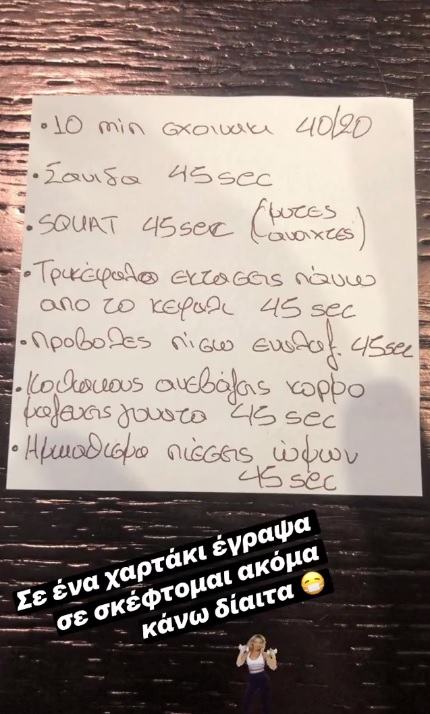 • 10 min σχοινακι 40/20
• Σανιδα 45 sec
• SQUAT 45 sec (μυτες
ανοιχτές)
• Τρικέφαλα εκτασεις πάνω
απο το κεφαλι 45 sec
• προβολες πισω εναλλαξ. 45sec
• Κοιλιακους ανεβάζεις κορμο
μαζευεις γονατο 45 sec
• Ημικαθισμα πιέσεις ώμων
45 sec
Σε ένα χαρτάκι έγραψα
σε σκέφτομαι ακόμα
κάνω δίαιτα 😷